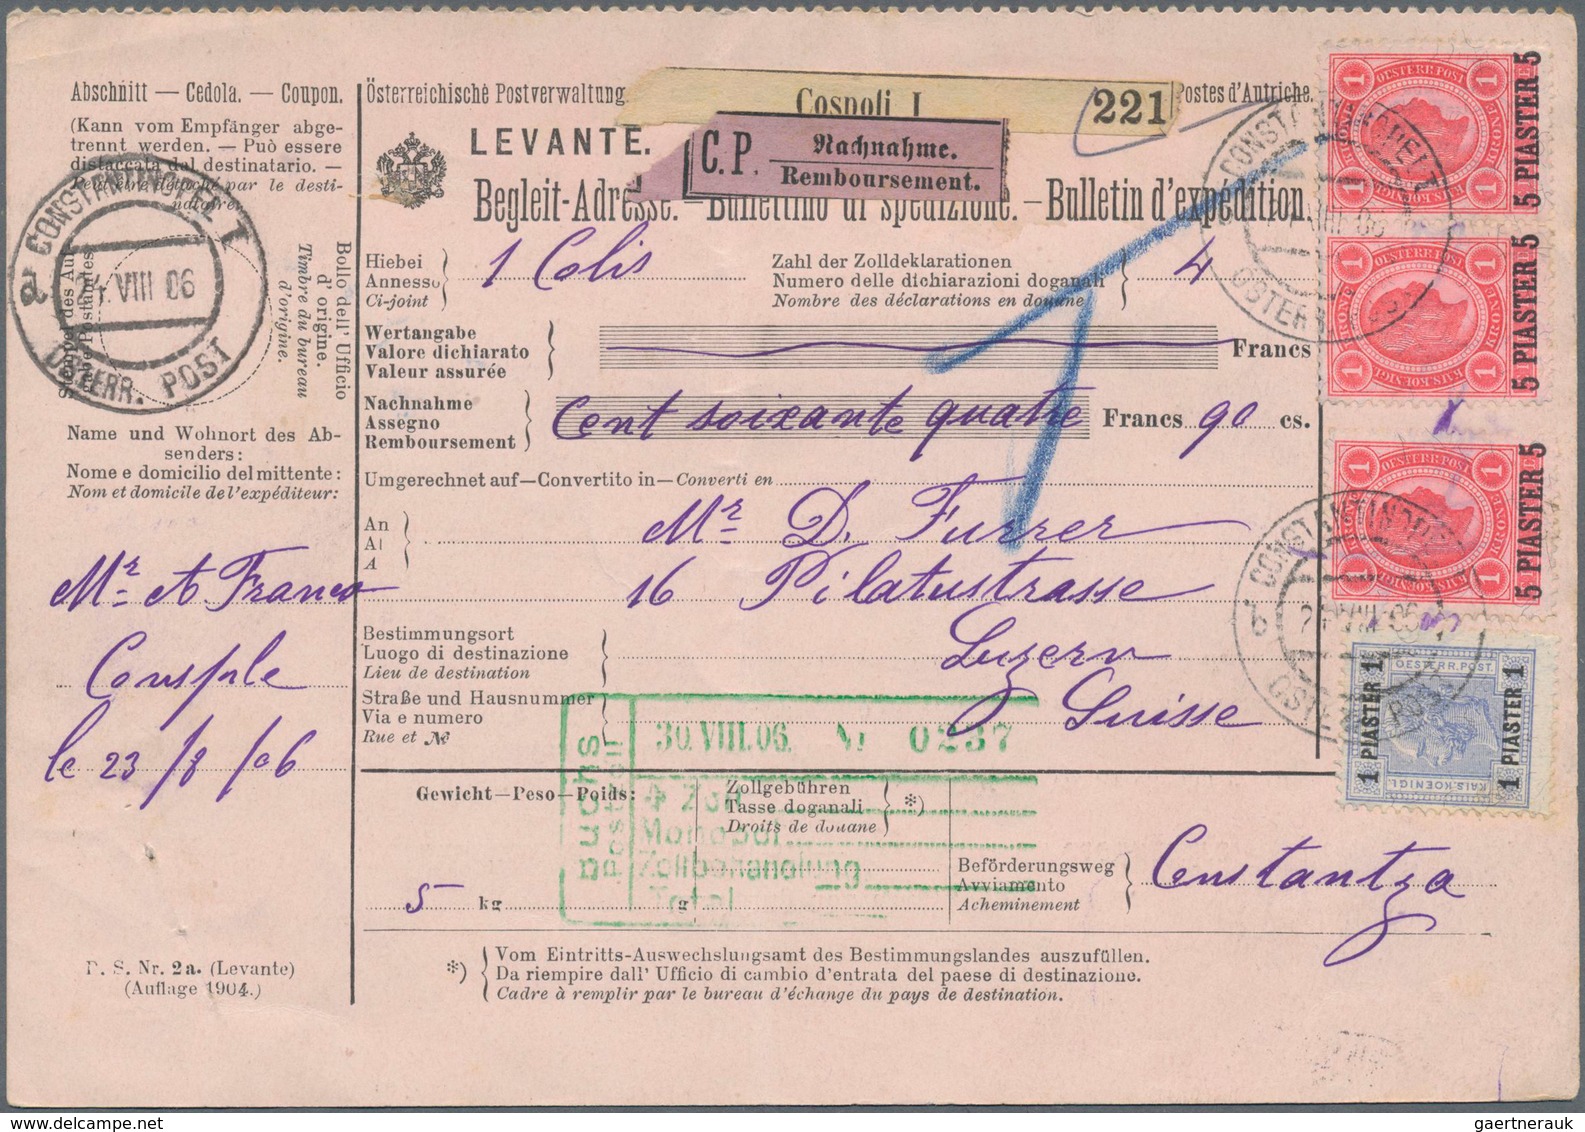 Abschnitt — Cedola. — Coupon.
(Kann vom Empfänger abge-
trennt werden. — Può essere
distaccata dal destinatario. —
Peut être détaché par le desti-
nataire.
CONSTANTINOPEL I
a 24 VIII 06
ÖSTERR. POST
Bollo dell' Ufficio
d' origine.
Timbre du bureau
d'origine.
Name und Wohnort des Ab-
senders:
Nome e domicilio del mittente:
Nom et domicile de l'expéditeur:
Mr A Franco
Consple
le 23/8/06
P. S. Nr. 2a. (Levante)
(Auflage 1904.)
Österreichische Postverwaltung
Cospoli I
221
Postes d'Autriche.
LEVANTE.
C.P. Nachnahme.
Remboursement.
Begleit-Adresse. – Bullettino di spedizione. – Bulletin d'expédition.
Hiebei
Annesso
Ci-joint
1 Colis
Zahl der Zolldeklarationen
Numero delle dichiarazioni doganali
Nombre des déclarations en douane
4
Wertangabe
Valore dichiarato
Valeur assurée
Francs
Nachnahme
Assegno
Remboursement
Cent soixante quatre Francs 90 cs.
Umgerechnet auf—Convertito in—Converti en
An
Al
A
Mr D. Furrer
16 Pilatustrasse
Bestimmungsort
Luogo di destinazione
Lieu de destination
Luzern
Straße und Hausnummer
Via e numero
Rue et №
Suisse
Buchs
Poststell
30.VIII.06. Nr 0237
Zoll
Monopol
Zollbehandlung
Total
Gewicht—Peso—Poids:
5 kg g
Zollgebühren
Tasse doganali
Droits de douane
*)
Beförderungsweg
Avviamento
Acheminement
Constantza
*)
Vom Eintritts-Auswechslungsamt des Bestimmungslandes auszufüllen.
Da riempire dall' Ufficio di cambio d'entrata del paese di destinazione.
Cadre à remplir par le bureau d'échange du pays de destination.
1 OESTERR. POST 1
5 PIASTER 5
CONSTANTINOPEL I
VIII 06
ÖSTERR. POST
5 PIASTER 5
1 OESTERR. POST 1
5 PIASTER 5
CONSTANTINOPEL
b 24 VIII 06
ÖSTERR. POST
OESTERR. POST.
1 PIASTER 1
1 PIASTER 1
KAIS. KOENIGL.
gaertnerauk